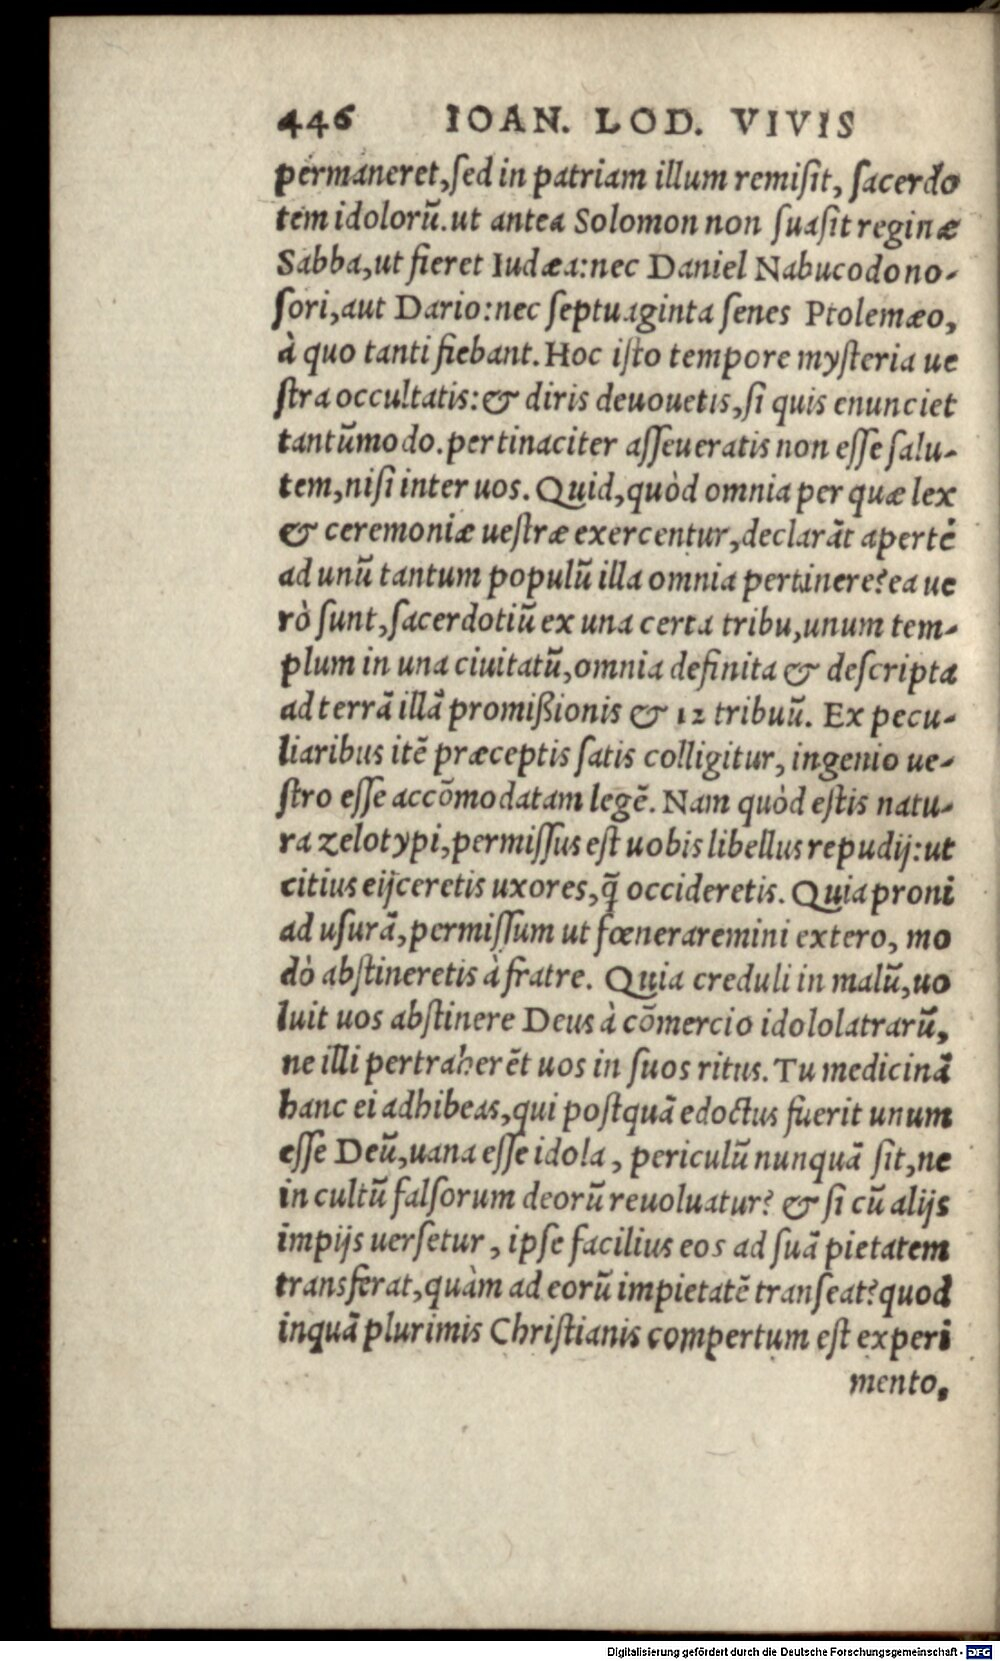 446 IOAN. LOD. VIVIS
permaneret,ſed in patriam illum remiſit, ſacerdo
tem idolorũ.ut antea Solomon non ſuaſit reginæ
Sabba,ut fieret Iudæa:nec Daniel Nabucodono-
ſori,aut Dario:nec ſeptuaginta ſenes Ptolemæo,
à quo tanti fiebant.Hoc iſto tempore myſteria ue
ſtra occultatis:& diris deuouetis,ſi quis enunciet
tantũmodo.pertinaciter aſſeueratis non eſſe ſalu-
tem,niſi inter uos. Quid,quòd omnia per quæ lex
& ceremoniæ ueſtræ exercentur,declarãt apertè
ad unũ tantum populũ illa omnia pertinere?ea ue
rò ſunt,ſacerdotiũ ex una certa tribu,unum tem-
plum in una ciuitatũ,omnia definita & deſcripta
ad terrã illã promißionis & 12 tribuũ. Ex pecu-
liaribus itẽ præceptis ſatis colligitur, ingenio ue-
ſtro eſſe accõmodatam legẽ. Nam quòd eſtis natu-
ra zelotypi,permiſſus eſt uobis libellus repudij:ut
citius eijceretis uxores,q̃ occideretis. Quia proni
ad uſurã,permiſſum ut fœneraremini extero, mo
dò abſtineretis à fratre. Quia creduli in malũ,uo
luit uos abſtinere Deus à cõmercio idololatrarũ,
ne illi pertraherẽt uos in ſuos ritus. Tu medicinã
hanc ei adhibeas,qui poſtquã edoctus fuerit unum
eſſe Deũ,uana eſſe idola, periculũ nunquã ſit,ne
in cultũ falſorum deorũ reuoluatur? & ſi cũ alijs
impijs uerſetur, ipſe facilius eos ad ſuã pietatem
transferat,quàm ad eorũ impietatẽ tranſeat?quod
inquã plurimis Chriſtianis compertum eſt experi
mento,
Digitalisierung gefördert durch die Deutsche Forschungsgemeinschaft - DFG